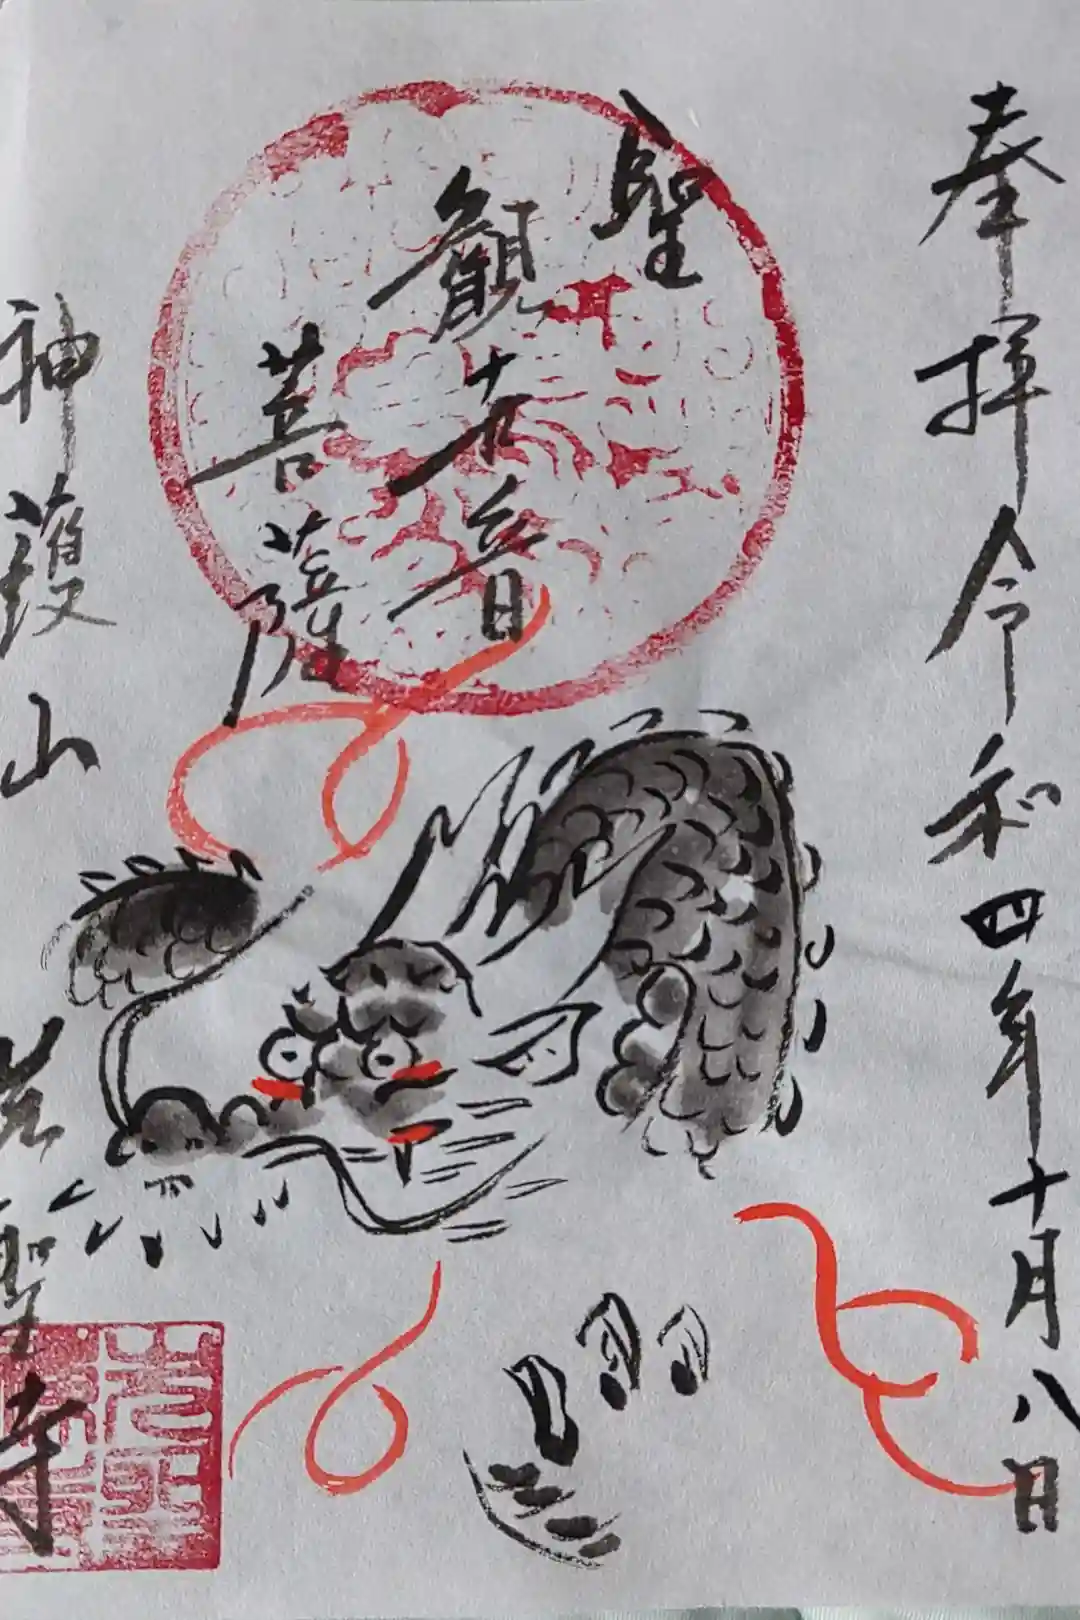 奉拝令和四年十月八日
聖
觀世音
菩薩
神護山
光聖寺